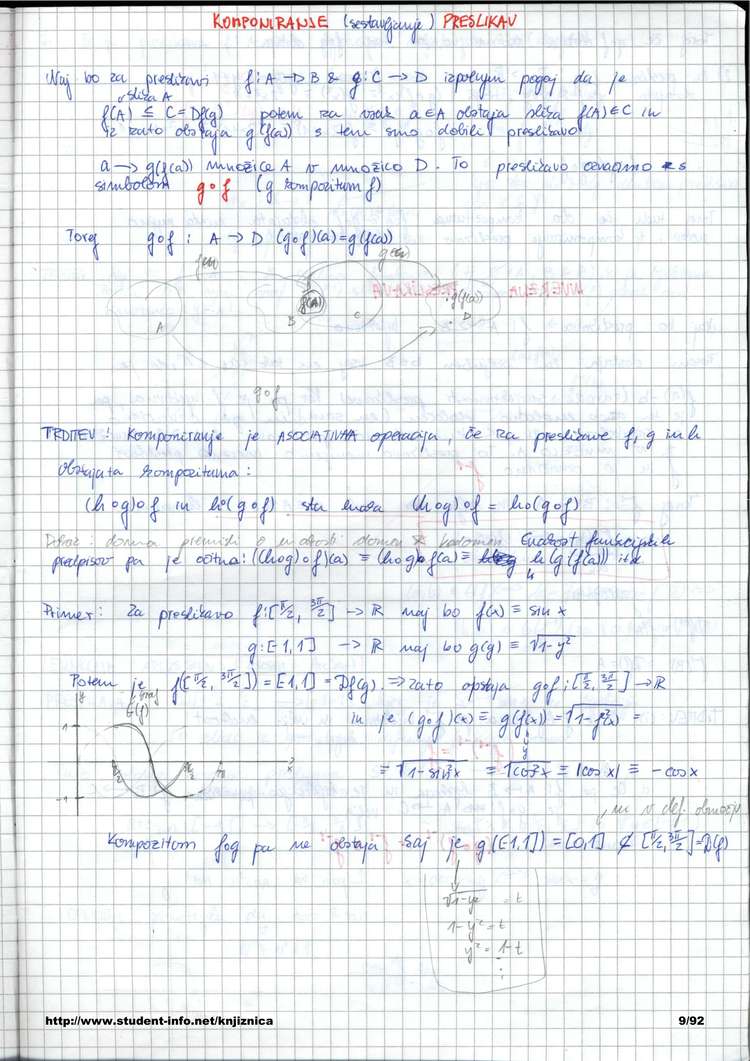 KOMPONIRANJE (sestavljanje) PRESLIKAV
Naj bo za preslikavi f: A → B & g: C → D izpolnjen pogoj da je
slika A
f(A) ⊆ C = Df(g) potem za vsak a ∈ A obstaja slika f(A) ∈ C in
iz zato obstaja g(f(a)) s tem smo dobili preslikavo
a → g(f(a)) množice A v množico D. To preslikavo označimo s
simbolom g∘f (g kompozitum f)
Torej g∘f : A → D (g∘f)(a) = g(f(a))
f(A)
g(f(a))
A B C D
g∘f
TRDITEV: Komponiranje je ASOCIATIVNA operacija, če za preslikave f, g in h
obstajata kompozituma:
(h∘g)∘f in h∘(g∘f) sta enaka (h∘g)∘f = h∘(g∘f)
Dokaz: domen kodomen Enakost funkcijskih
predpisov pa je očitna: ((h∘g)∘f)(a) ≡ (h∘g)∘f(a) ≡ h(g(f(a)) itd
Primer: Za preslikavo f: [π/2, 3π/2] → ℝ naj bo f(x) ≡ sin x
g: [-1,1] → ℝ naj bo g(y) ≡ √1-y²
Potem je f([π/2, 3π/2]) = [-1,1] = Df(g). ⇒ zato obstaja g∘f : [π/2, 3π/2] → ℝ
y
graf
G(f)
1
in je (g∘f)(x) ≡ g(f(x)) = √1-f²(x) =
y
π/2
x
-1
≡ √1-sin²x ≡ √cos²x ≡ |cos x| ≡ -cos x
ni v def. območju
Kompozitum f∘g pa ne obstaja saj je g([-1,1]) = [0,1] ⊄ [π/2, 3π/2] = D(f)
√1-y² = t
1-y² = t
y² = 1-t
http://www.student-info.net/knjiznica
9/92